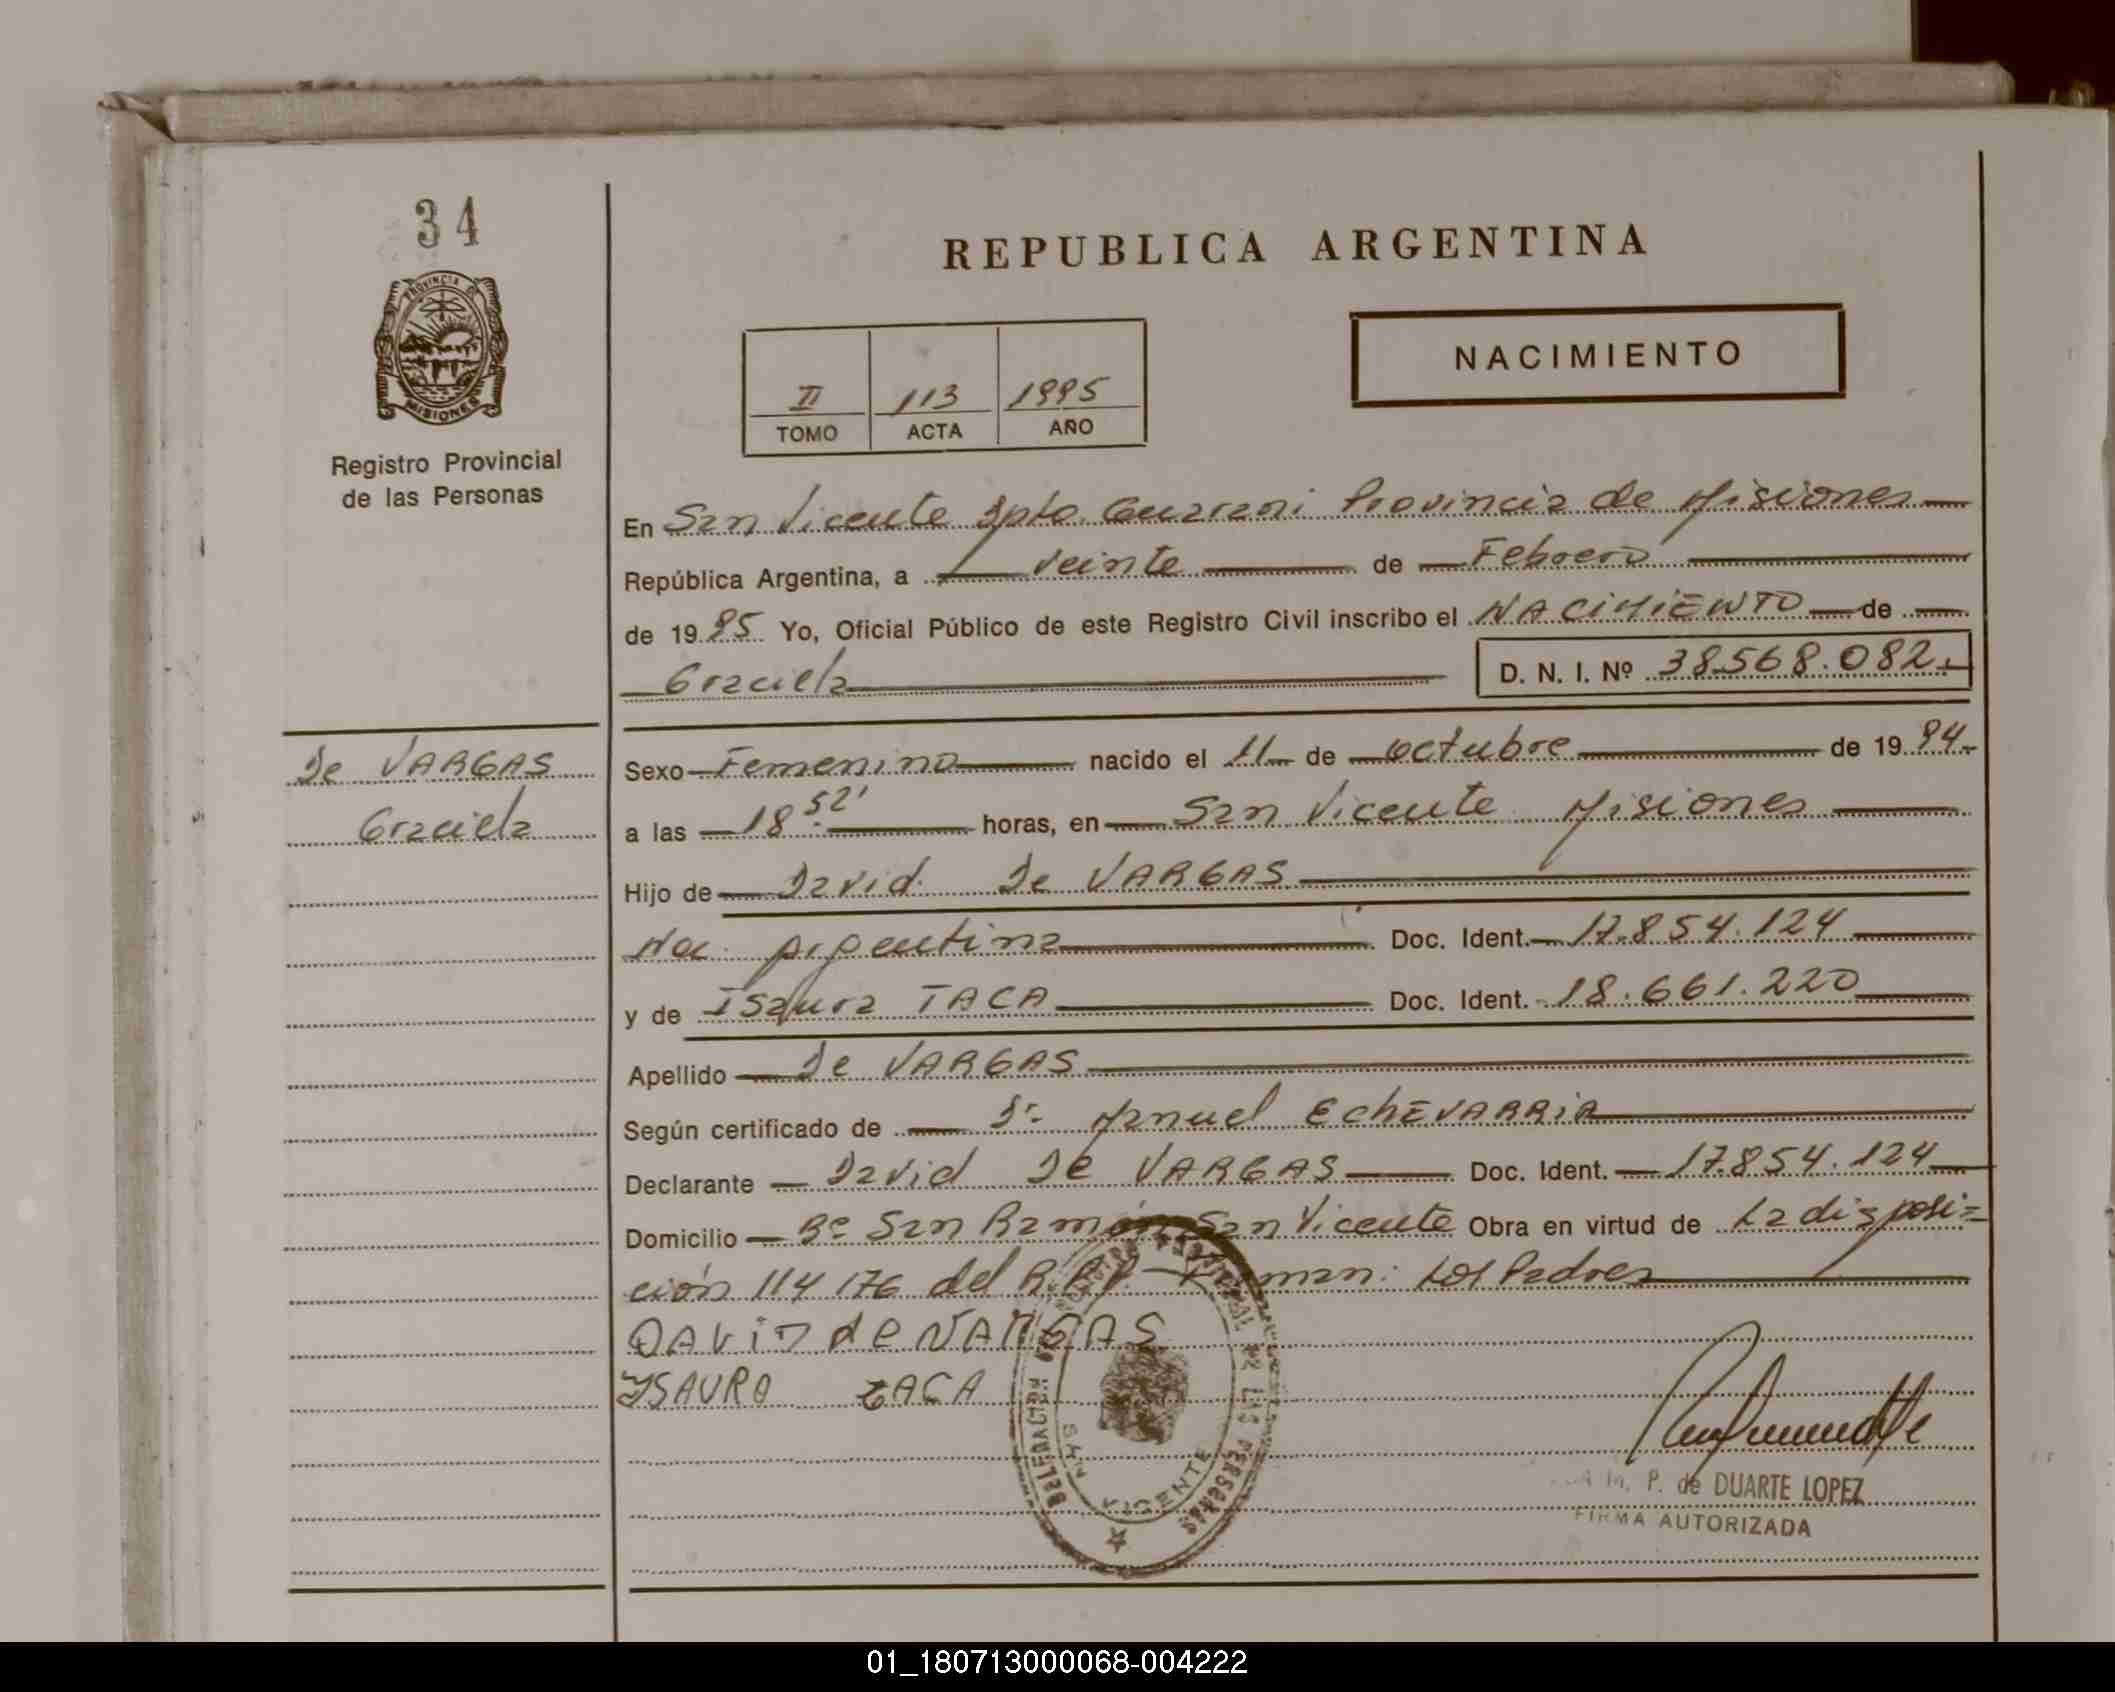 34
PROVINCIA DE
MISIONES
Registro Provincial
de las Personas
De VARGAS
Graciela
REPUBLICA ARGENTINA
II 113 1995
TOMO ACTA AÑO
NACIMIENTO
En San Vicente Dpto. Guarani Provincia de Misiones
República Argentina, a veinte de Febrero
de 19 95 Yo, Oficial Público de este Registro Civil inscribo el NACIMIENTO de
Graciela D. N. I. Nº 38568.082.
Sexo Femenino nacido el 11 de octubre de 19 94
a las 18 52' horas, en San Vicente Misiones
Hijo de David De VARGAS
Nac. Argentina Doc. Ident. 17.854.124
y de Isaura TACA Doc. Ident. 18.661.220
Apellido De VARGAS
Según certificado de Dr. Manuel EchEVARRiA
Declarante David De VARGAS Doc. Ident. 17.854.124
Domicilio Bº San Ramón San Vicente Obra en virtud de La disposi=
ción 114/76 del R.P.P. Firman: Los Padres
DAViD de VARGAS
YSAURA TACA
DELEGACION SAN VICENTE
PROVINCIAL DE LAS PERSONAS
M. P. de DUARTE LOPEZ
FIRMA AUTORIZADA
01_180713000068-004222